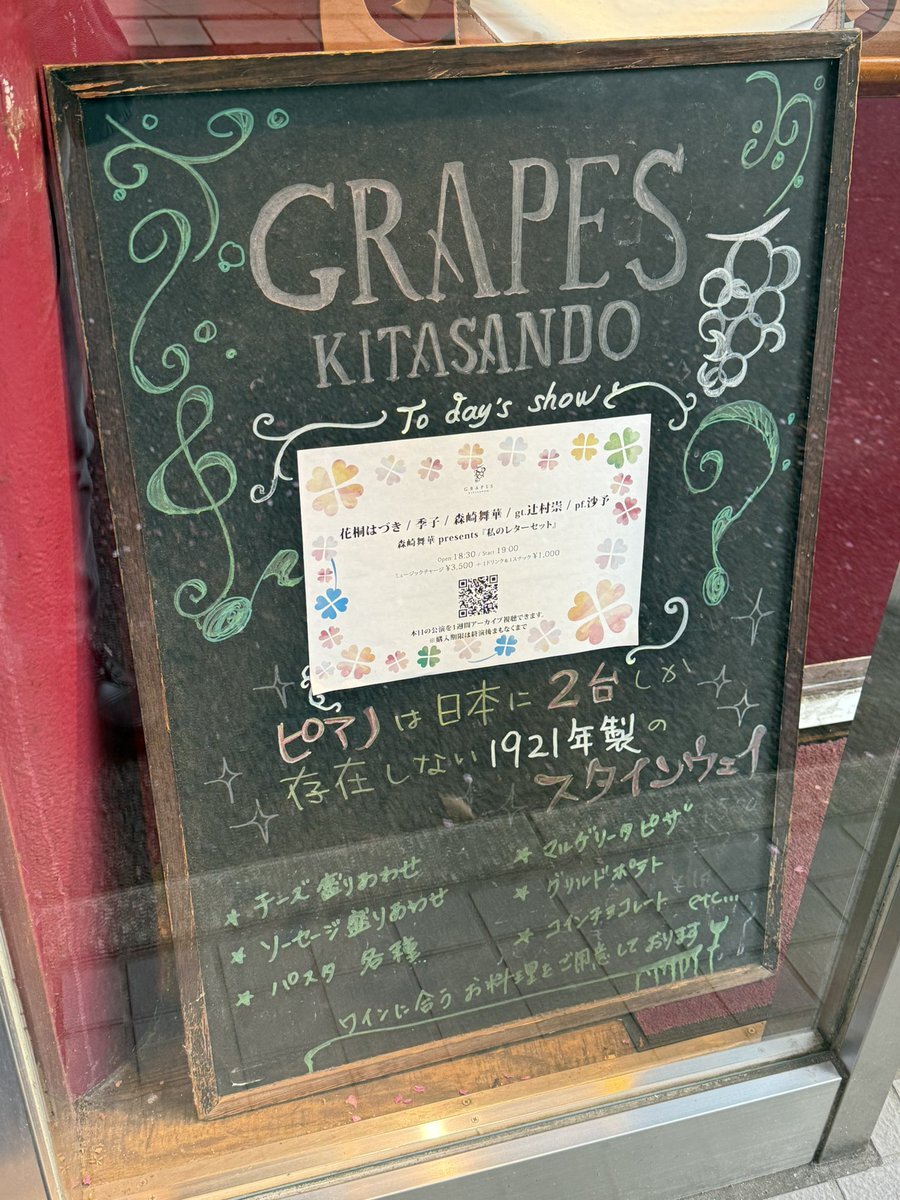 GRAPES
KITASANDO
To day's show
GRAPES
KITASANDO
花桐はづき / 季子 / 森崎舞華 / gt.辻村崇 / pf.沙予
森崎舞華 presents『私のレターセット』
Open 18:30 / Start 19:00
ミュージックチャージ ¥3,500 + 1ドリンク&1スナック ¥1,000
本日の公演を1週間アーカイブ視聴できます。
※購入期限は終演後まもなくまで
ピアノは日本に2台しか
存在しない1921年製の
スタインウェイ
★ チーズ盛りあわせ
★ ソーセージ盛りあわせ
★ パスタ 各種
★ マルゲリータピザ
★ グリルドポテト
★ コインチョコレート etc...
ワインに合うお料理をご用意しております